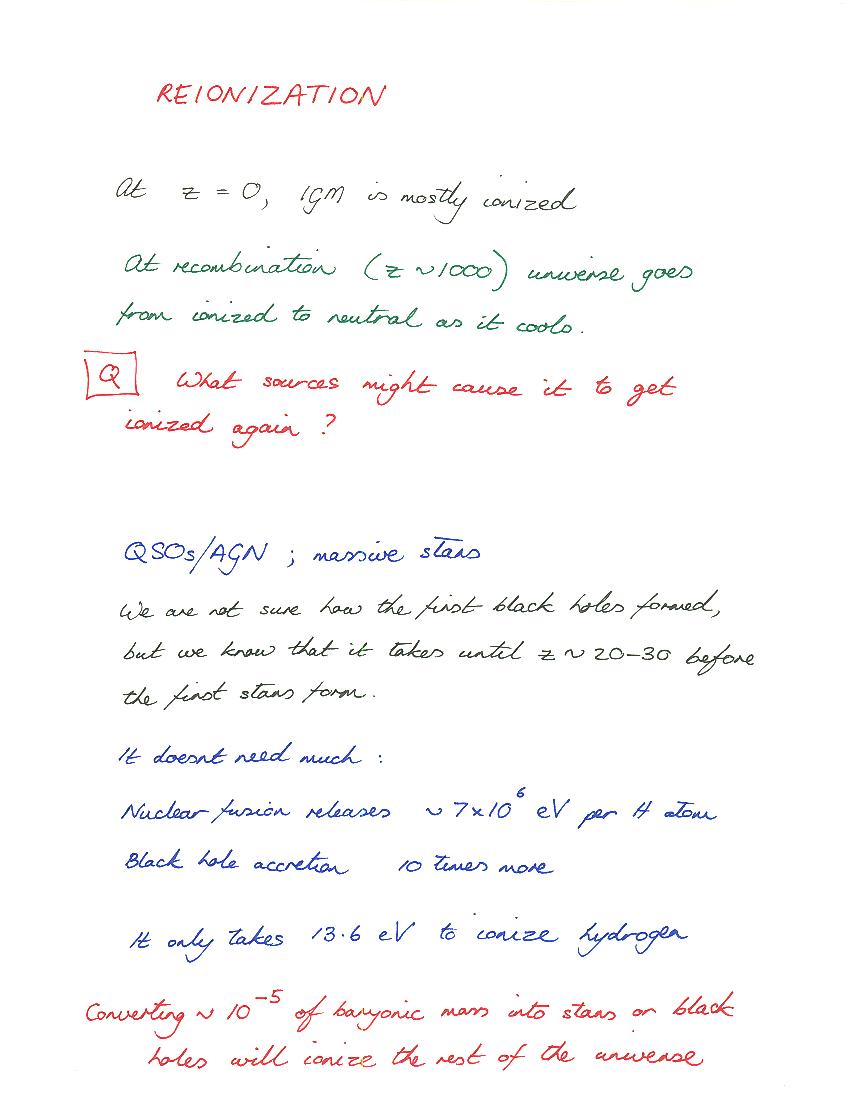 REIONIZATION
At z = 0, IGM is mostly ionized
At recombination (z ~1000) universe goes
from ionized to neutral as it cools.
Q What sources might cause it to get
ionized again ?
QSOs/AGN ; massive stars
We are not sure how the first black holes formed,
but we know that it takes until z ~ 20-30 before
the first stars form.
It doesnt need much :
Nuclear fusion releases ~ 7x10⁶ eV per H atom
Black hole accretion 10 times more
It only takes 13.6 eV to ionize hydrogen
Converting ~ 10⁻⁵ of baryonic mass into stars or black
holes will ionize the rest of the universe